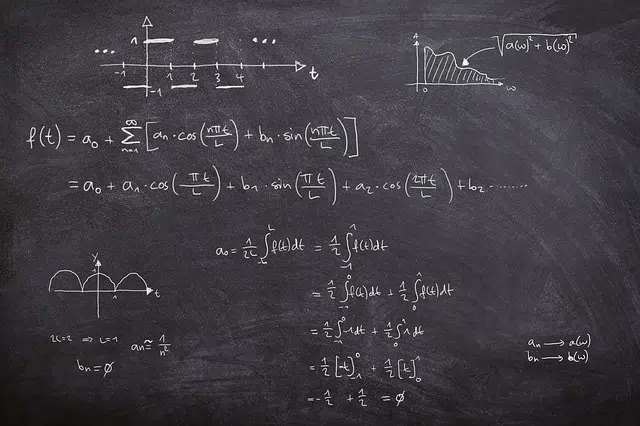 1 ... ...
-1 1 2 3 4 t
-1
A √(a(ω)² + b(ω)²)
0 ω
f(t) = a₀ + ∑ₙ₌₁^∞ [aₙ · cos(nπt/L) + bₙ · sin(nπt/L)]
= a₀ + a₁ · cos(πt/L) + b₁ · sin(πt/L) + a₂ · cos(2πt/L) + b₂ ·········
a₀ = 1/2L ∫₋L^L f(t)dt = 1/2 ∫₋₁^1 f(t)dt
= 1/2 ∫₋₁^0 f(t)dt + 1/2 ∫₀^1 f(t)dt
= 1/2 ∫₋₁^0 -1dt + 1/2 ∫₀^1 1dt
= 1/2 [-t]₋₁^0 + 1/2 [t]₀^1
= -1/2 + 1/2 = ∅
y
1
1 t
2L=2 ⇒ L=1 aₙ ≈ 1/n²
bₙ = ∅
aₙ → a(ω)
bₙ → b(ω)